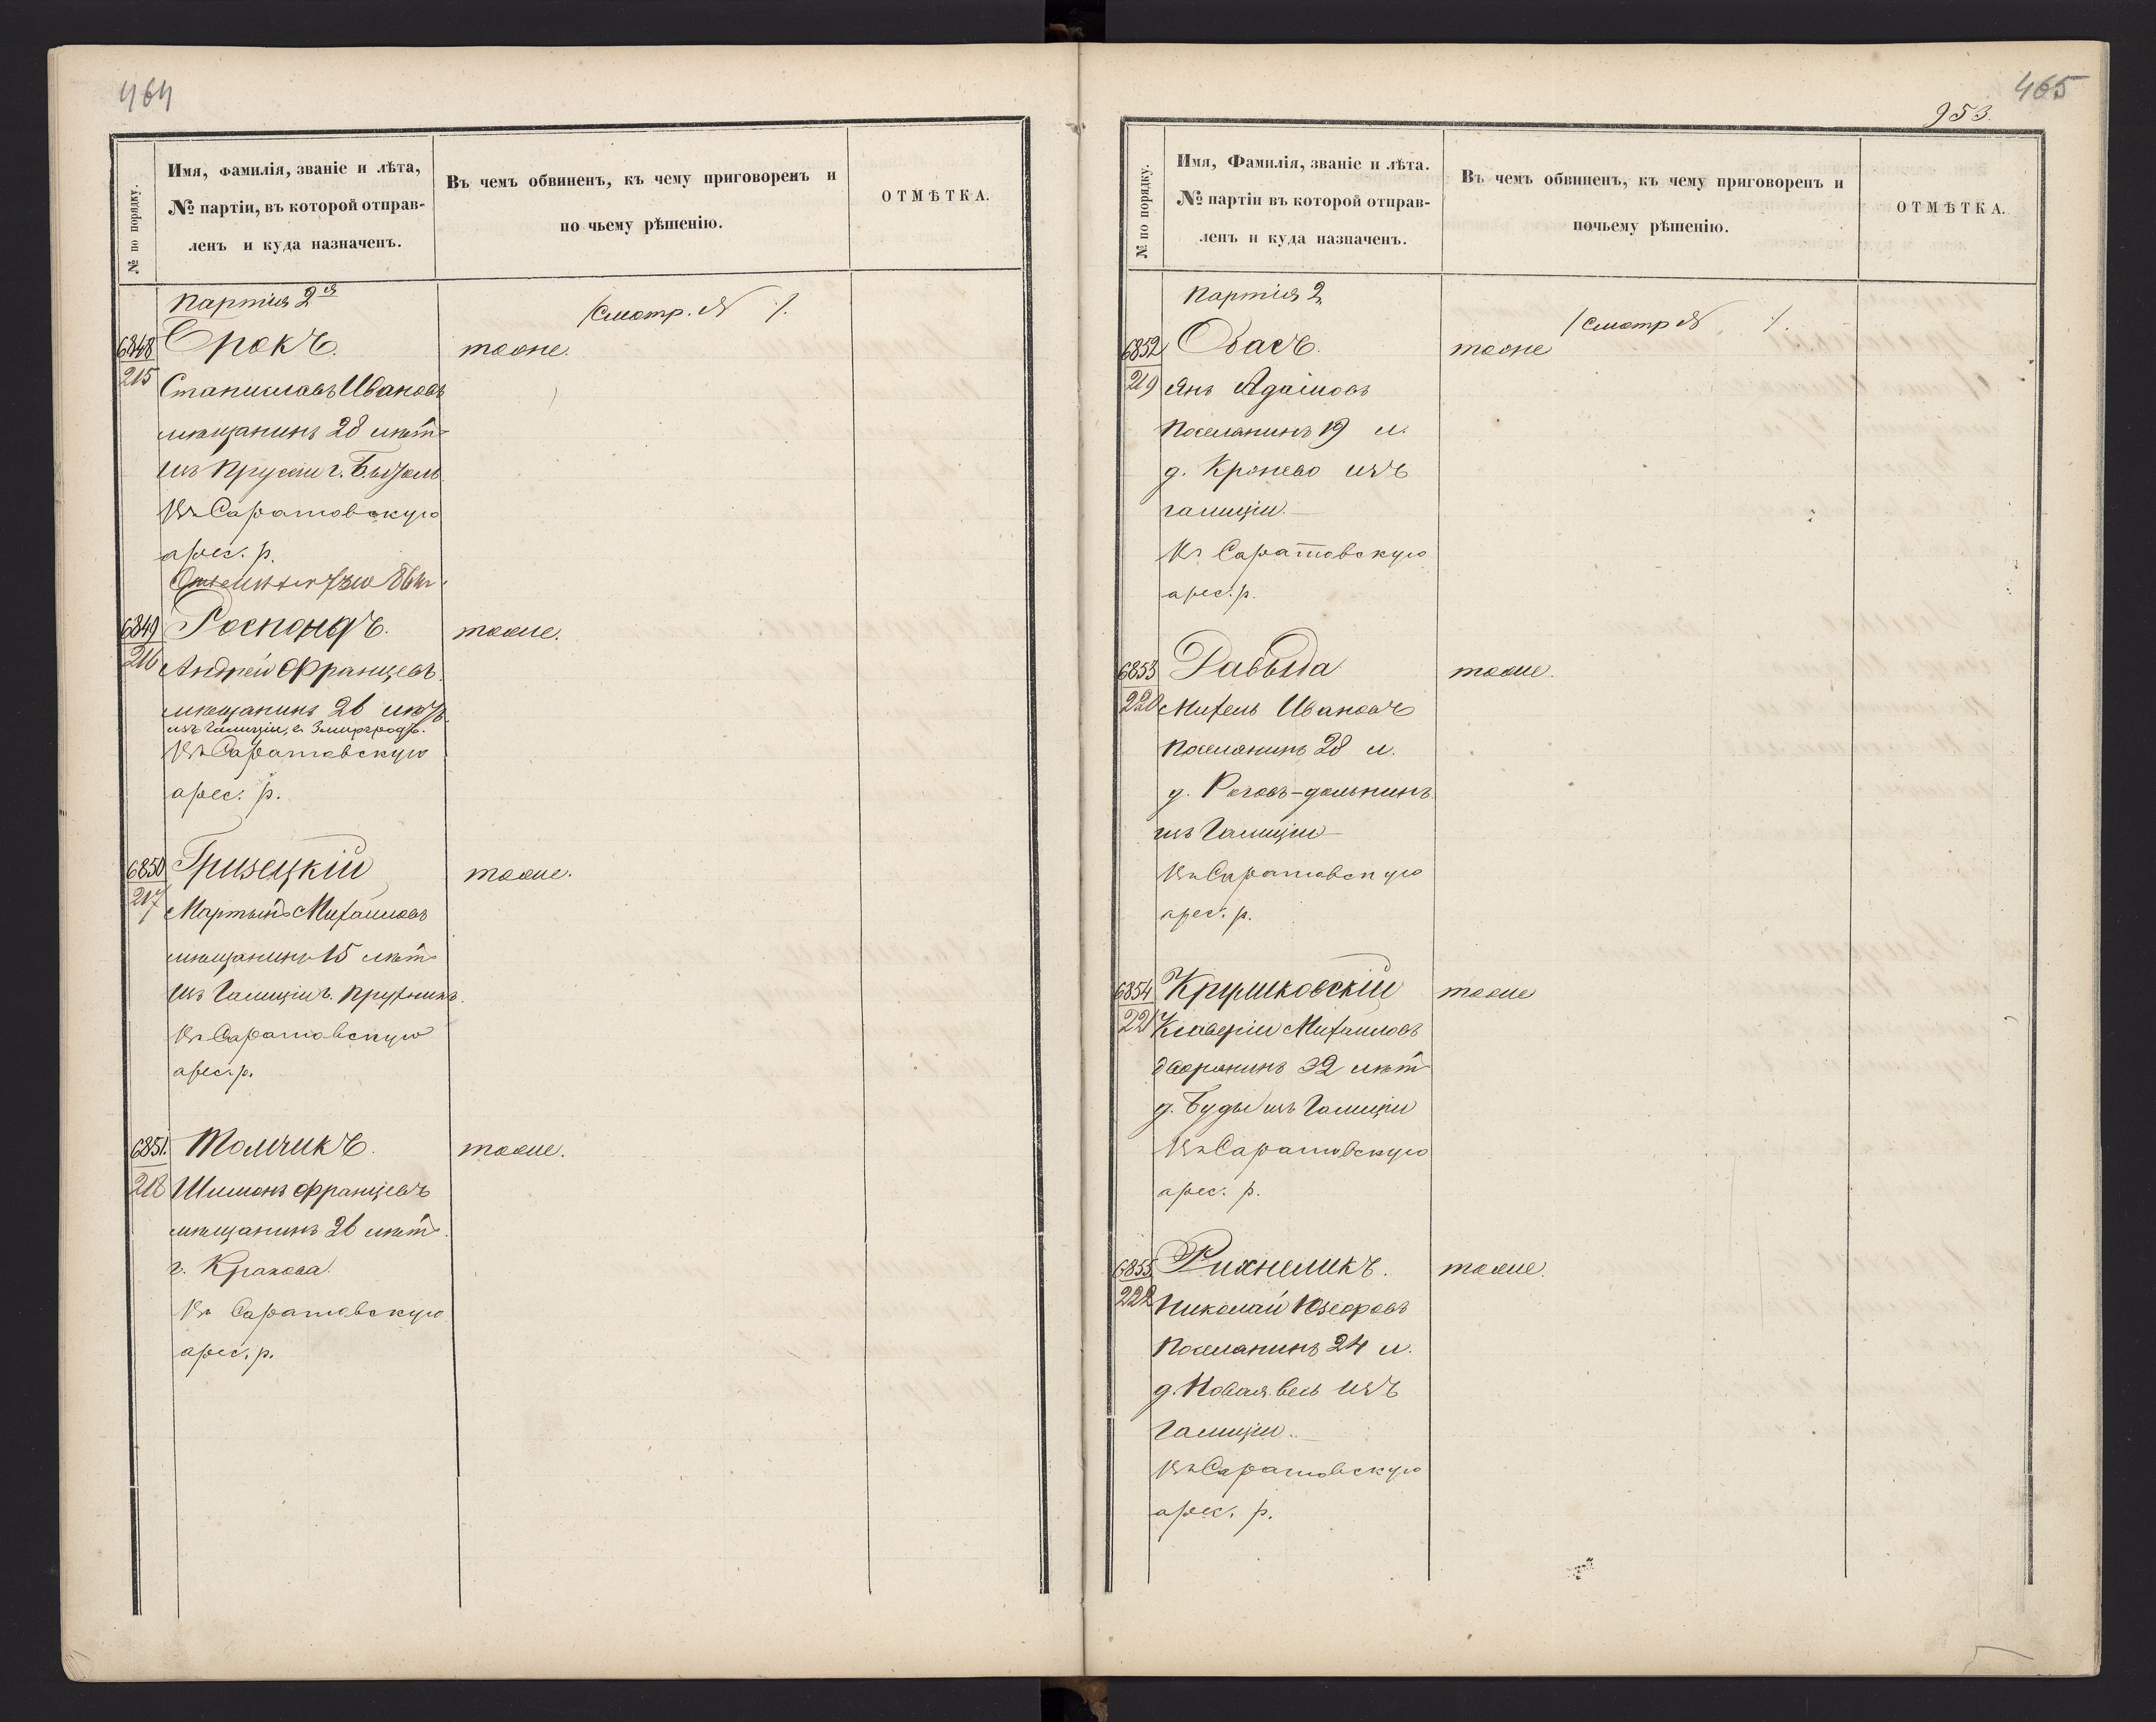 464
№ по порядку.
Имя, фамилія, званіе и лѣта,
№ партіи, въ которой отправ-
ленъ и куда назначенъ.
Въ чемъ обвиненъ, къ чему приговоренъ и
по чьему рѣшенію.
ОТМѢТКА.
Партія 2я
/Смотр. №    /.
6848
215
Срокъ. тоже.
Станиславъ Ивановъ
мѣщанинъ 28 лѣтъ
изъ Пруссіи г.
Въ Саратовскую
арес. р.
6849
216
Роспондъ. тоже.
Андрей Францевъ.
мѣщанинъ 26 лѣтъ.
изъ Галиціи, г. Змигродъ.
Въ Саратовскую
арес. р.
6850
217
Гризецкій тоже.
Мартынъ Михаиловъ
мѣщанинъ 15 лѣтъ
изъ Галиціи г. Прухникъ.
Въ Саратовскую
арес. р.
6851.
218
Томчикъ. тоже.
Шимонъ Францевъ
мѣщанинъ 26 лѣтъ.
г. Кракова.
Въ Саратовскую
арес. р.
465
953.
№ по порядку.
Имя, Фамилія, званіе и лѣта.
№ партіи въ которой отправ-
ленъ и куда назначенъ.
Въ чемъ обвиненъ, къ чему приговоренъ и
почьему рѣшенію.
ОТМѢТКА.
Партія 2
/Смотр №    /.
6852
219
тоже
Янъ Адамовъ
Поселянинъ 19 л.
д. Кронево изъ
Галиціи.
Въ Саратовскую
арес. р.
6853
220
тоже.
Михель Ивановъ
Поселянинъ 28 л.
д.
изъ Галиціи
Въ Саратовскую
арес. р.
6854
221
Крушковскій тоже
Ксаверій Михаиловъ
дворянинъ 32 лѣтъ
д. Буды изъ Галиціи
Въ Саратовскую
арес. р.
6855
222
тоже.
Николай Юзефовъ
Поселянинъ 24 л.
д. Новая весь изъ
Галиціи.
Въ Саратовскую
арес. р.